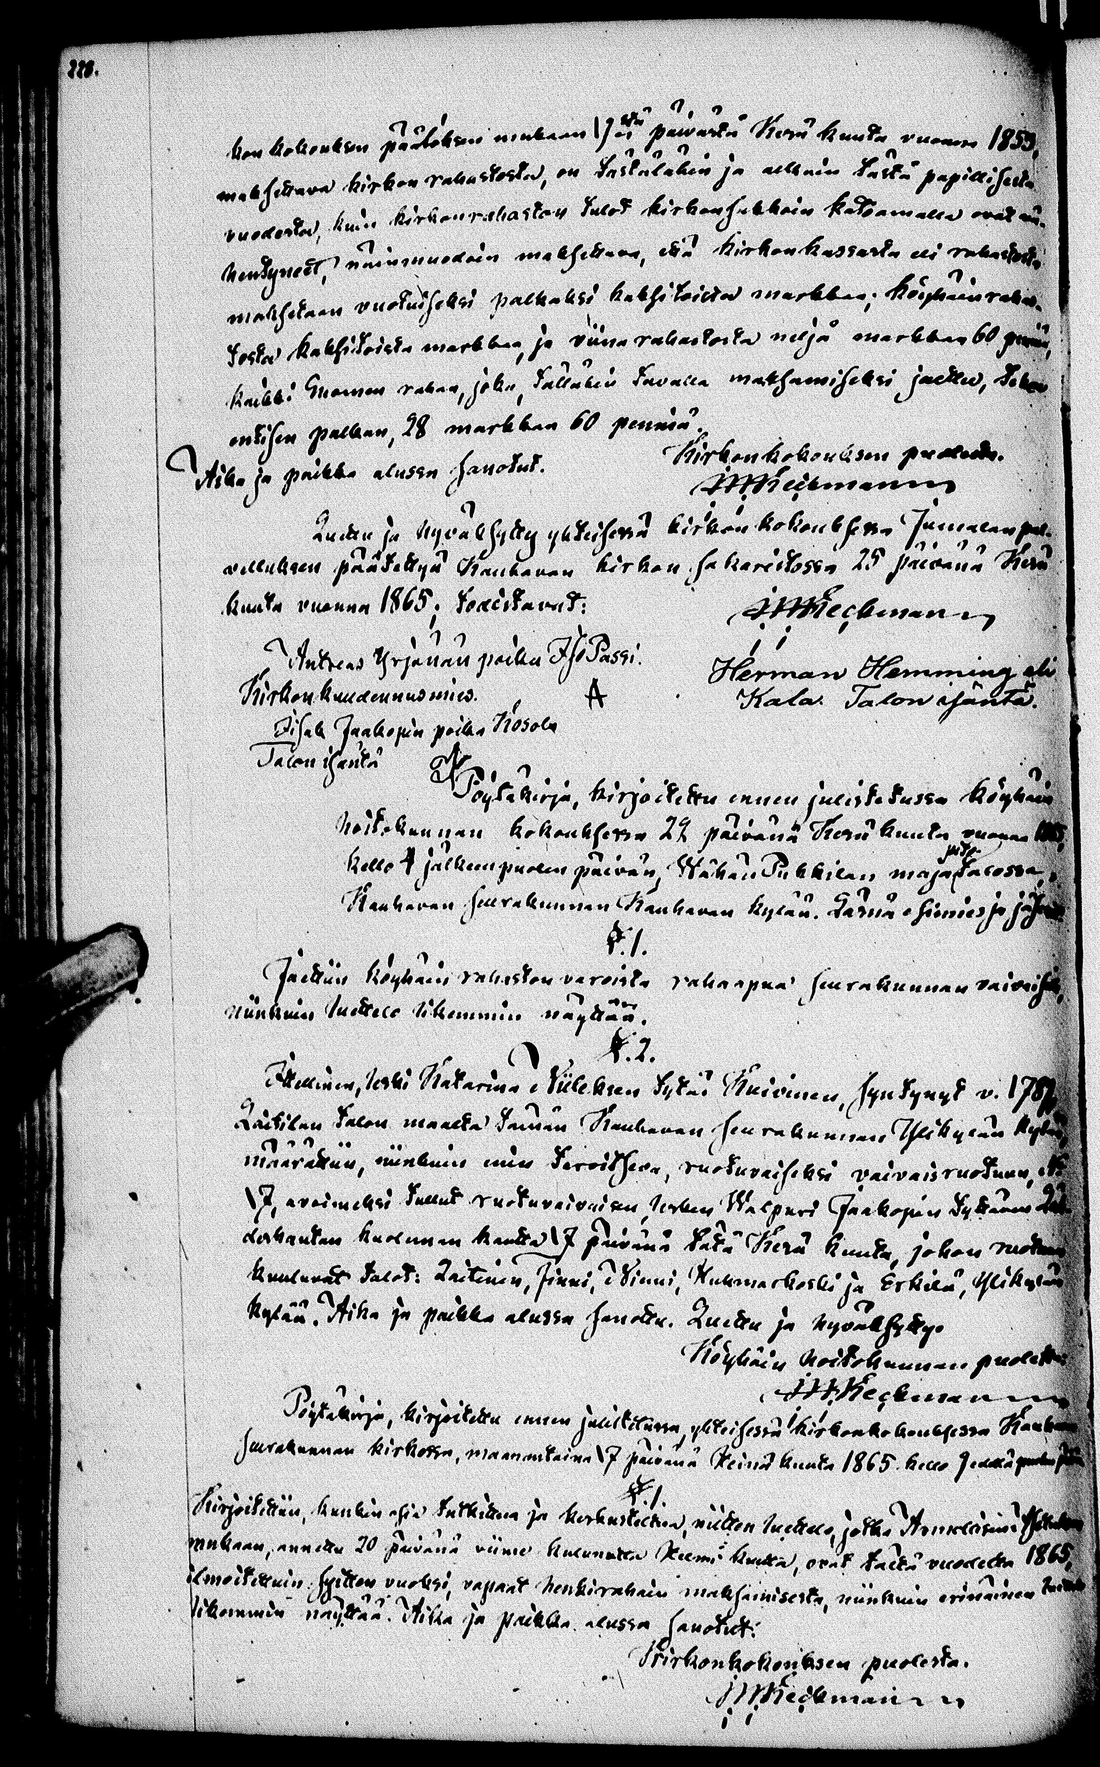 228.
kon kokouksen päätöksen mukaan 17stä päivästä Kesä kuuta vuonna 1853,
maksettava kirkon rahastosta, on tästälähin ja alkain tästä papillisesta
vuodesta, kuin kirkonrahaston tulot kirkonhakkoin katoamalla ovat vä-
hentyneet, näinmuodoin maksettava, että kirkonkassasta eli rahastosta
maksetaan vuotuiseksi palkaksi kaksitoista markkaa; köyhäin rahas-
tosta kaksitoista markkaa, ja viina rahastosta neljä markkaa 60 penniä,
kaikki Suomen rahaa, joka, tälläkin tavalla maksamiseksi jaettu, tekee
entisen palkan, 28 markkaa 60 penniä.
Aika ja paikka alussa sanotut.
Kirkonkokouksen puolesta.
J.M.Keckman
Luettu ja hyväksytty yhteisessä kirkon kokouksessa Jumalan pal-
velluksen päätettyä Kauhavan kirkon sakaristossa 25 päivänä Kesä
kuuta vuonna 1865; todistavat:
J.M.Keckman
Antreas Yrjänän poika Iso Passi.
Kirkon kuudennusmies.
A
Herman Hemming eli
Kala. Talon isäntä.
Iisak Jaakopin poika Kosola
Talon isäntä
Pöytäkirja, kirjoitettu ennen julistetussa köyhäin
hoitokunnan kokouksessa 29 päivänä Kesä kuuta vuonna 1865,
kello 4 jälkeen puolen päivän, Wähän Pukkilan majatalossa,
Kauhavan seurakunnan Kauhavan kylää. Läsnä esimies ja jäsenet
§.1.
Jaettiin köyhäin rahaston varoista rahaapua seurakunnan vaivaisille,
niinkuin luettelo likemmin näyttää.
§.2.
Itellinen, leski Katarina Niileksen tytär Kuivinen, syntynyt v. 1787,
Laitilan talon maalta tämän Kauhavan seurakunnan Ylikylän kylää,
määrättiin, niinkuin niin tarvitseva, ruotuvaiseksi vaivaisruotuun, No
17, avoimeksi tullut ruotuvaivaisen, lesken Walpuri Jaakopin tyttären
kuoleman kautta 17 päivänä tätä Kesä kuuta, johon ruotuun
kuuluvat talot: Laitinen, Jinni, Ninni, Huhmarkoski ja Erkilä, Ylikylän
kylää. Aika ja paikka alussa sanottu. Luettu ja hyväksytty.
Köyhäin hoitokunnan puolesta
J.M.Keckman
Pöytäkirja, kirjoitettu ennen julistetussa, yhteisessä kirkonkokouksessa Kauhavan
seurakunnan kirkossa, maanantaina 17 päivänä Heinä kuuta 1865. kello
§.1.
Kirjoitettiin, kunkin asia tutkittua ja keskusteltua, niitten luettelo, jotka Armollisimman
mukaan, annettu 20 päivänä viime kulunutta kuuta, ovat tältä vuodelta 1865,
ilmoitettuin syitten vuoksi, vapaat henkirahain maksamisesta, niinkuin erinäinen luettelo
likemmin näyttää. Aika ja paikka alussa sanotut:
Kirkonkokouksen puolesta.
J.M.Keckman